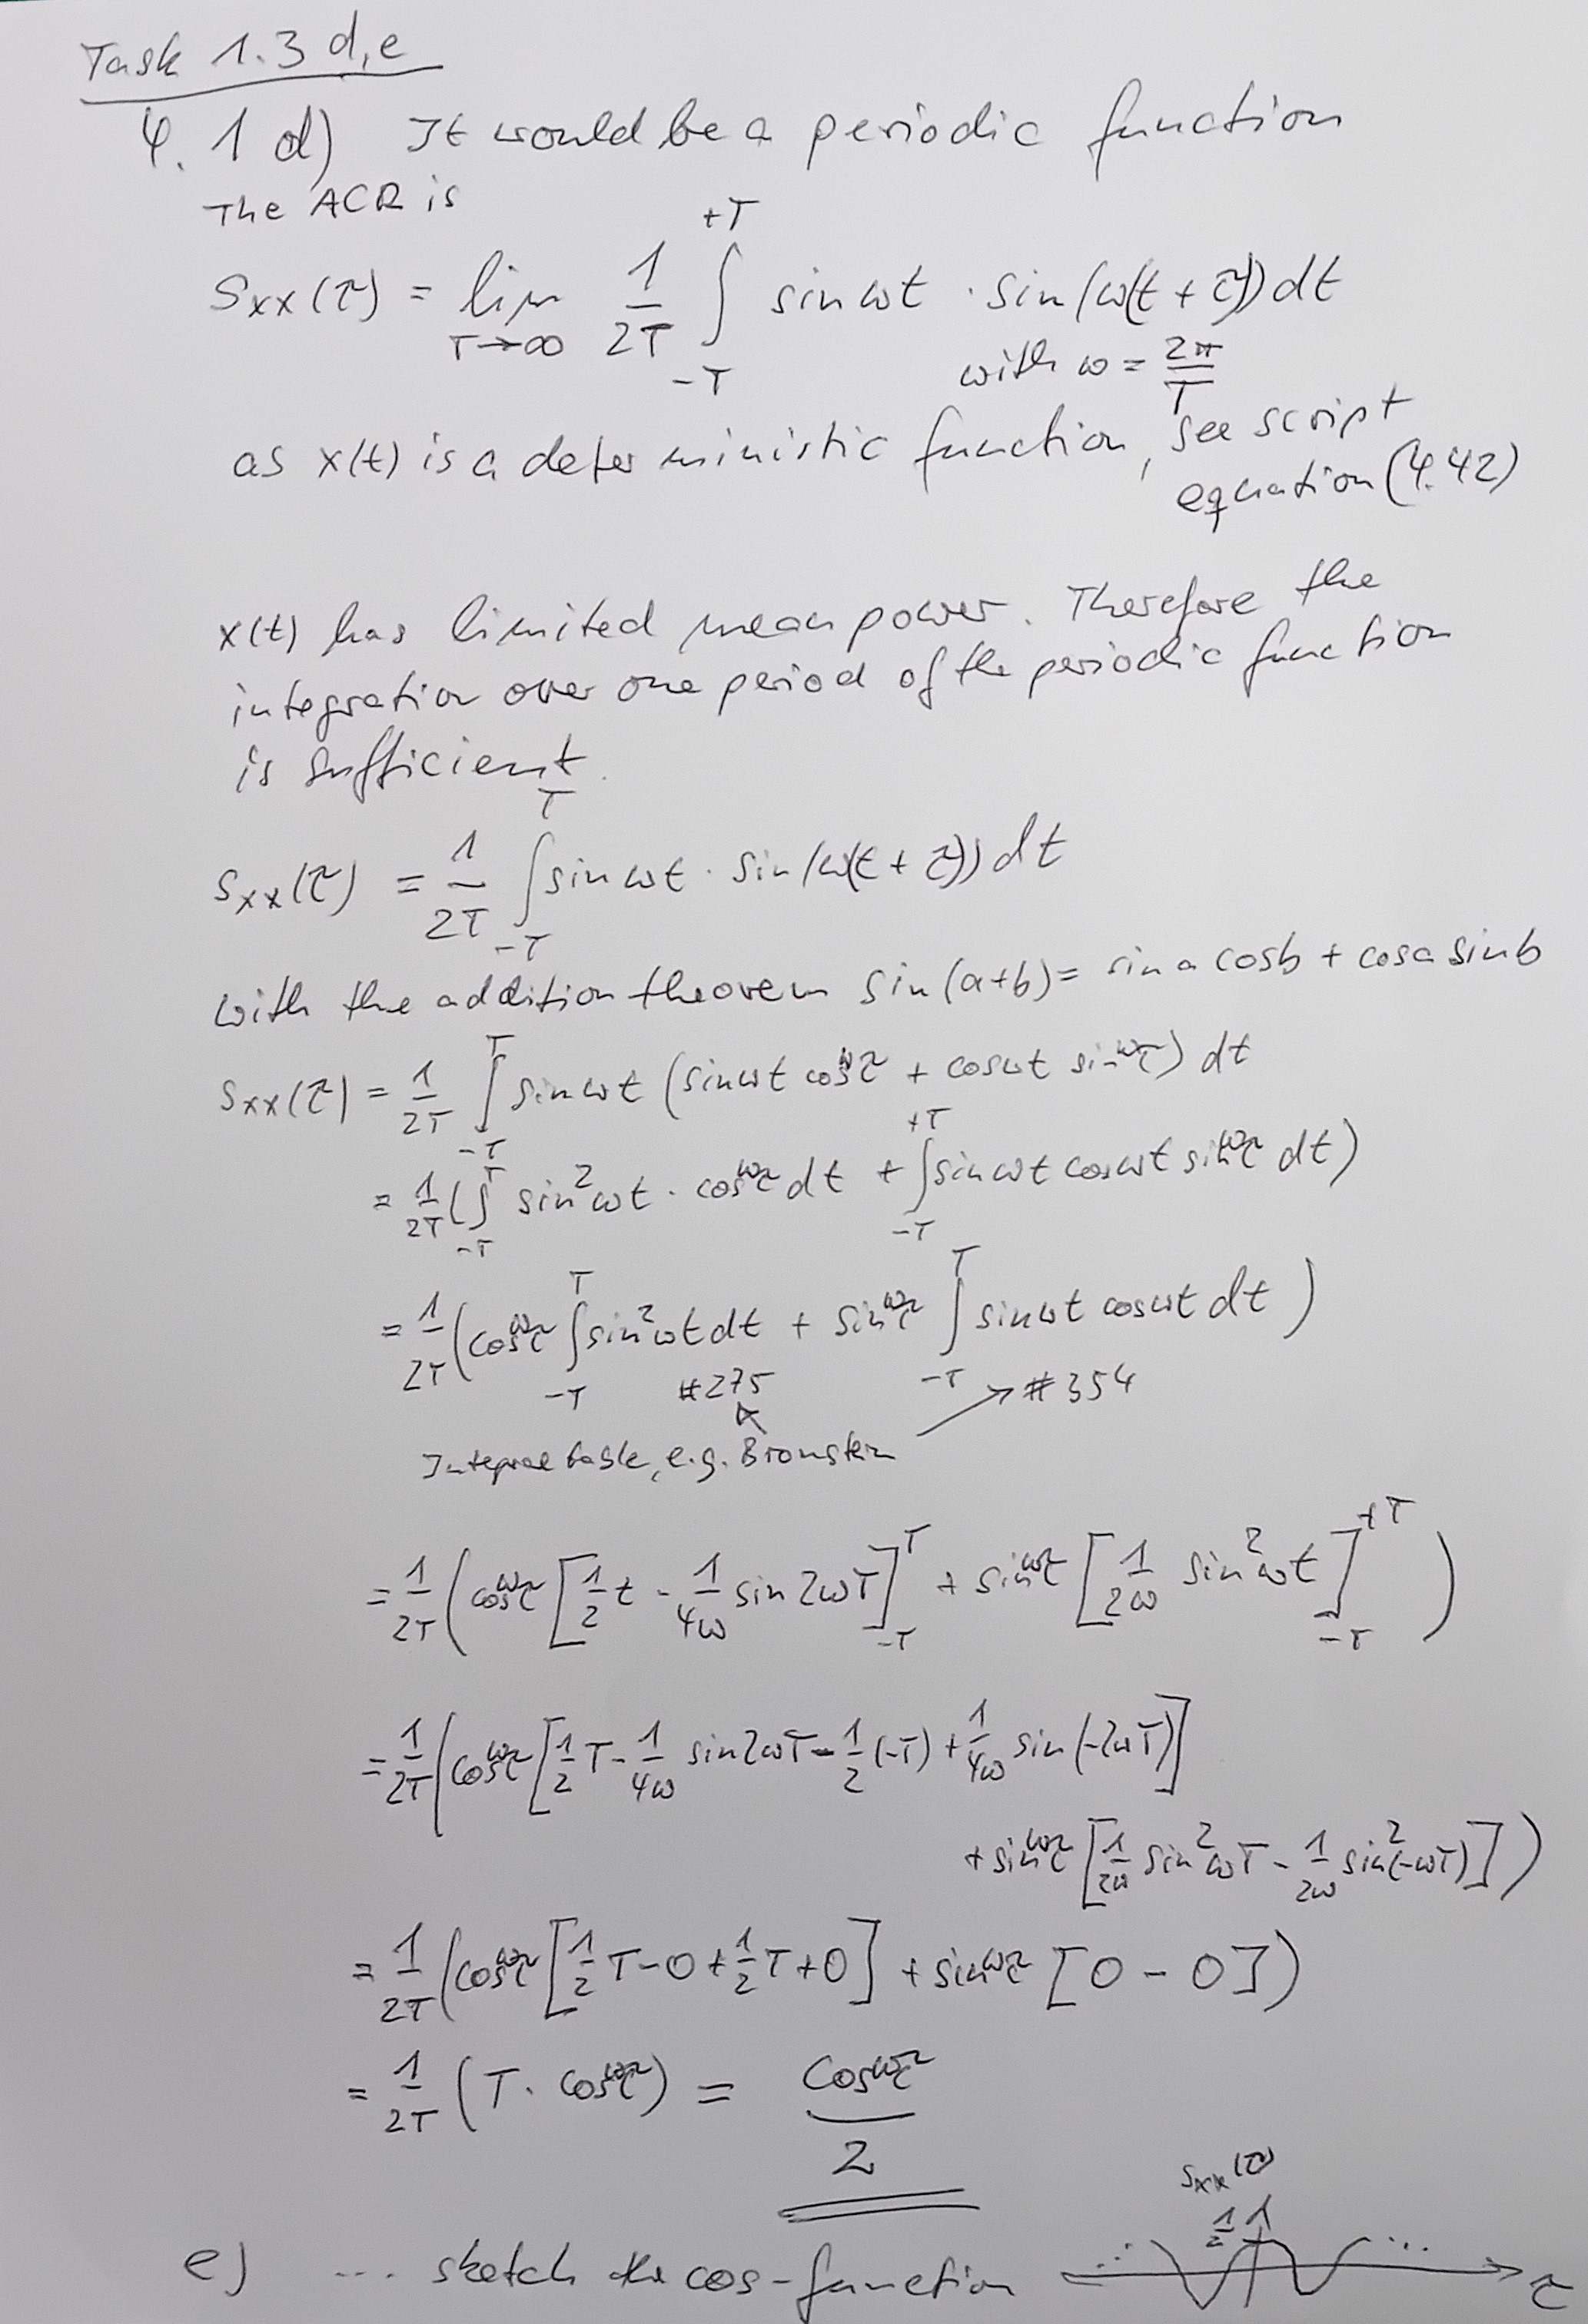 Task 1.3 d,e
4.1 d) It would be a periodic function
The ACR is
Sxx(τ) = lim T→∞ 1/2T ∫_{-T}^{+T} sin ωt · sin(ω(t + τ)) dt
with ω = 2π/T
as x(t) is a deterministic function, see script
equation (4.42)
x(t) has limited mean power. Therefore the
integration over one period of the periodic function
is sufficient.
Sxx(τ) = 1/2T ∫_{-T}^{T} sin ωt · sin(ω(t + τ)) dt
with the addition theorem sin(a+b) = sin a cos b + cos a sin b
Sxx(τ) = 1/2T ∫_{-T}^{T} sin ωt (sin ωt cos ωτ + cos ωt sin ωτ) dt
= 1/2T (∫_{-T}^{T} sin² ωt · cos ωτ dt + ∫_{-T}^{+T} sin ωt cos ωt sin ωτ dt)
= 1/2T (cos ωτ ∫_{-T}^{T} sin² ωt dt + sin ωτ ∫_{-T}^{T} sin ωt cos ωt dt)
#275 #354
Integral table, e.g. Bronstein
= 1/2T (cos ωτ [1/2 t - 1/4ω sin 2ωT]_{-T}^{T} + sin ωτ [1/2ω sin² ωt]_{-T}^{+T})
= 1/2T (cos ωτ [1/2 T - 1/4ω sin 2ωT - 1/2 (-T) + 1/4ω sin(-2ωT)]
+ sin ωτ [1/2ω sin² ωT - 1/2ω sin² (-ωT)])
= 1/2T (cos ωτ [1/2 T - 0 + 1/2 T + 0] + sin ωτ [0 - 0])
= 1/2T (T · cos ωτ) = cos ωτ / 2
Sxx(τ)
1/2
e) ... sketch the cos-function
... ...
τ